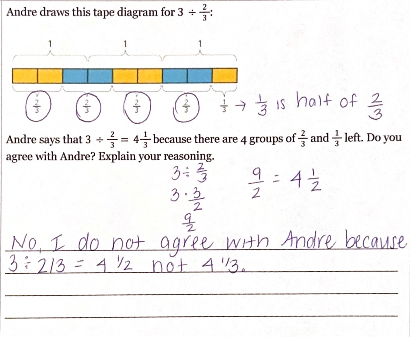 Andre draws this tape diagram for 3 ÷ 2/3:
1 1 1
2/3 2/3 2/3 2/3 1/3 → 1/3 is half of 2/3
Andre says that 3 ÷ 2/3 = 4 1/3 because there are 4 groups of 2/3 and 1/3 left. Do you
agree with Andre? Explain your reasoning.
3 ÷ 2/3
3 · 3/2
9/2
9/2 = 4 1/2
No, I do not agree with Andre because
3 ÷ 2/3 = 4 1/2 not 4 1/3.